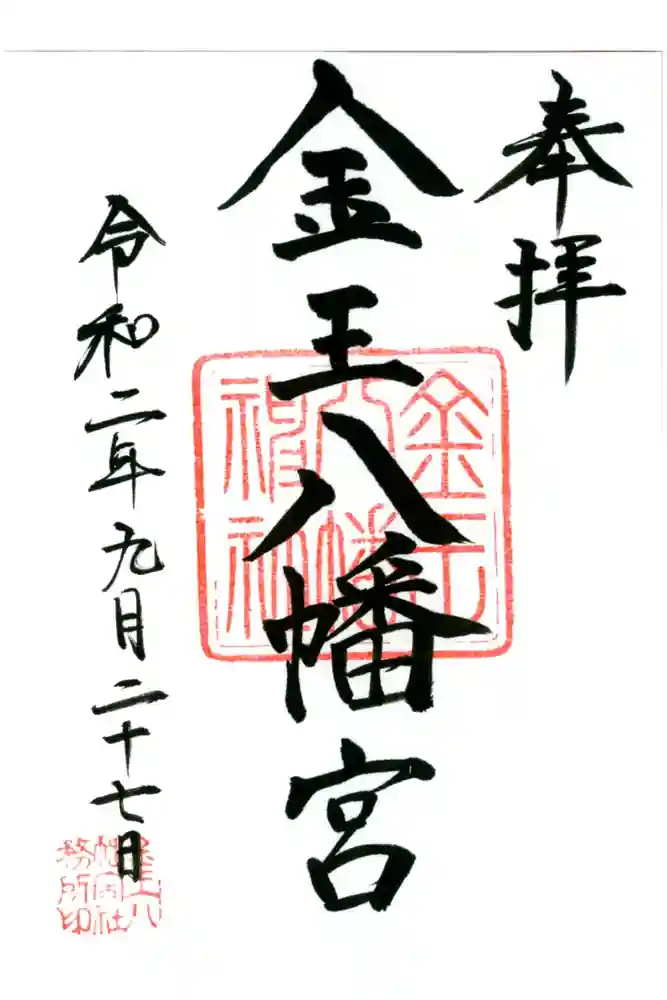 奉拝
金王八幡宮
令和二年九月二十七日
金王
八幡
神社
金王八
幡宮社
務所印